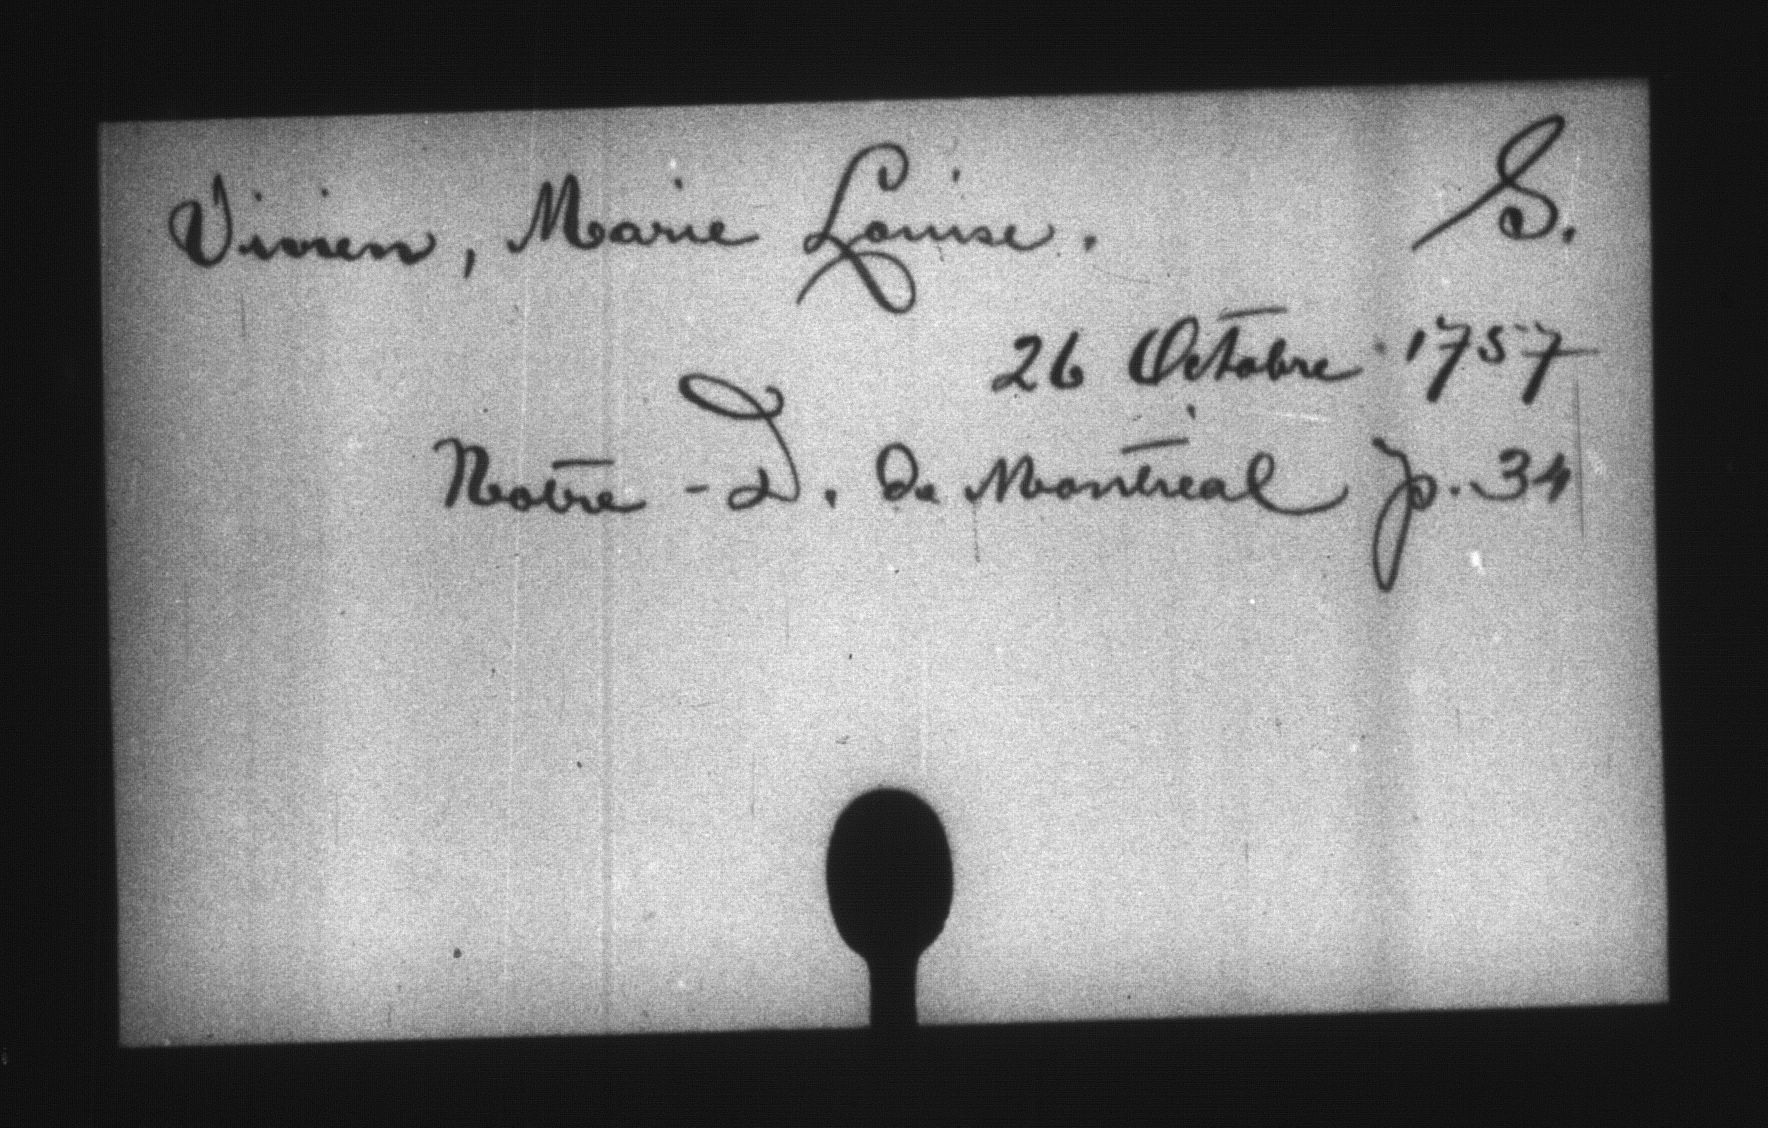 Vivien, Marie Louise. S.
26 Octobre 1757
Notre-D. de Montréal p. 34